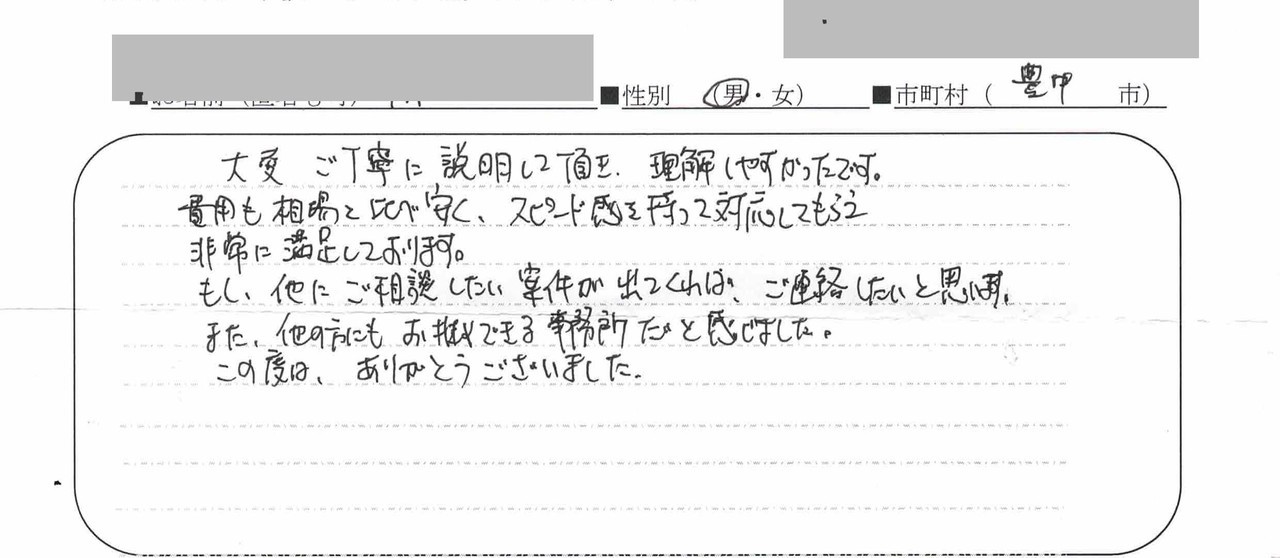 ■性別 (男・女) ■市町村 ( 豊中 市)
大変 ご丁寧に 説明して頂き、理解しやすかったです。
費用も相場と比べ安く、スピード感を持って対応してもらえ
非常に満足しております。
もし、他に ご相談したい 案件が 出てくれば、ご連絡したいと思います。
また、他の方にも お勧めできる 事務所だと感じました。
この度は、ありがとうございました。